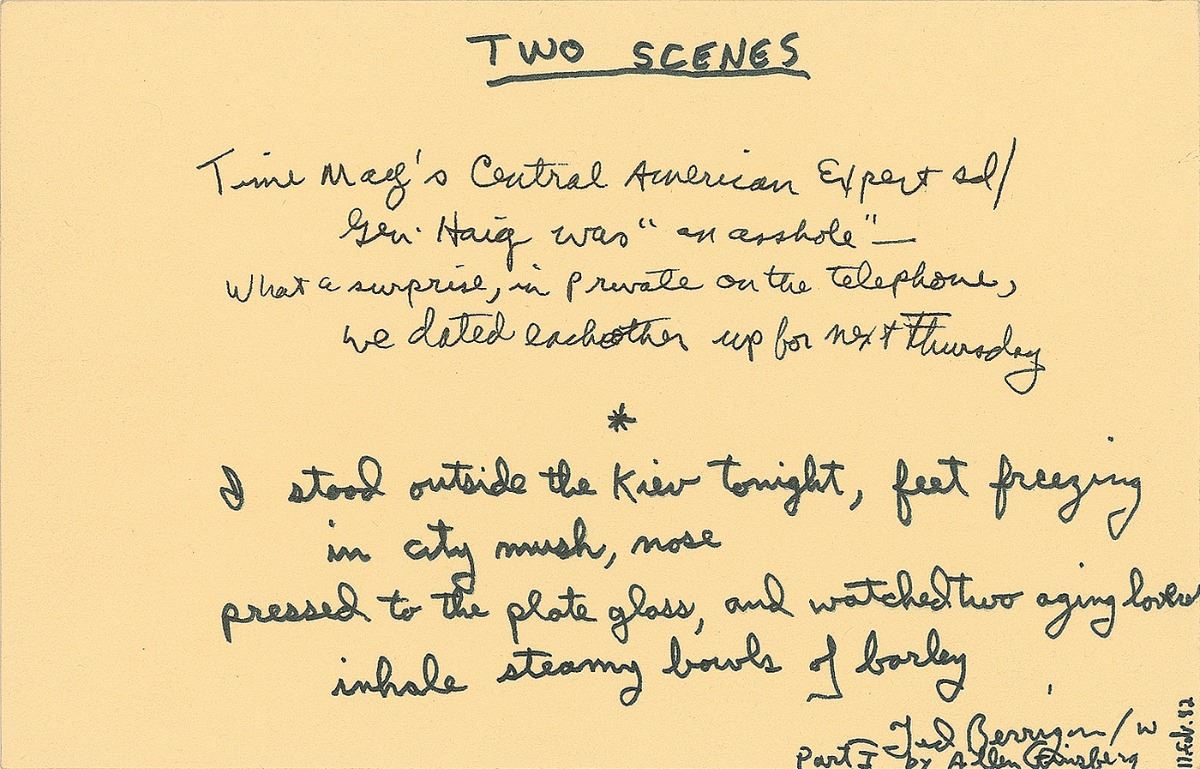 TWO SCENES
Time Mag's Central American Expert sd/
Gen. Haig was "an asshole"—
What a surprise, in private on the telephone,
we dated eachother up for next Thursday
*
I stood outside the Kiev tonight, feet freezing
in city mush, nose
pressed to the plate glass, and watched two aging lovers
inhale steamy bowls of barley
Ted Berrigan/w
Part I by Allen Ginsberg
17.Feb.82